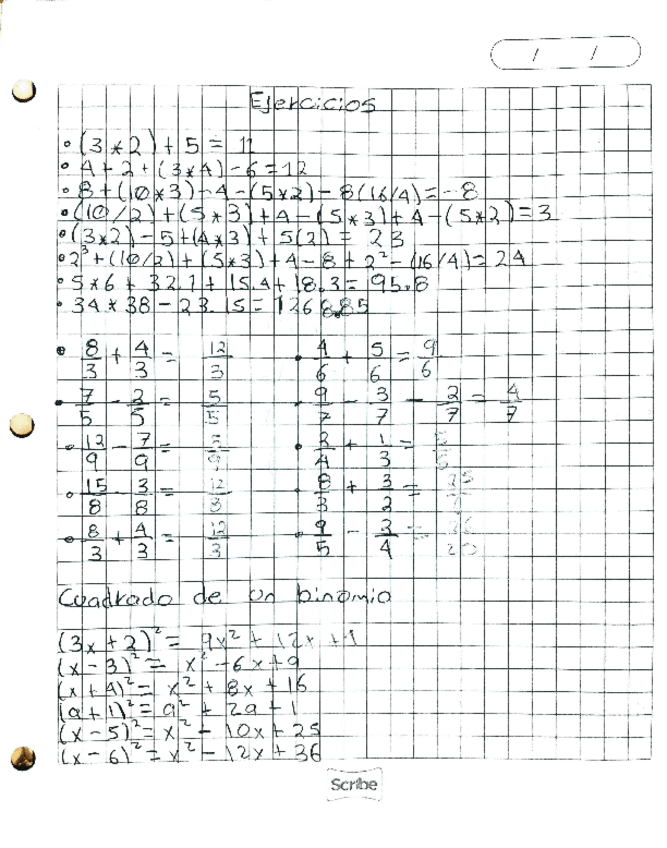 / /
Ejercicios
• (3*2)+5=11
• 4+2+(3*4)-6=12
• 8+(10*3)-4-(5*2)-8(16/4)=-8
• (10/2)+(5*3)+4-(5*3)+4-(5*2)=3
• (3*2)-5+(4*3)+5(2)=23
• 2³+(10/2)+(5*3)+4-8+2²-(16/4)=24
• 5*6+32.1+15.4+18.3=95.8
• 34*38-23.15=1268.85
• 8/3 + 4/3 = 12/3
• 4/6 + 5/6 = 9/6
• 7/5 - 2/5 = 5/5
• 9/7 - 3/7 - 2/7 = 4/7
• 12/9 - 7/9 = 5/9
• 2/4 + 1/3 =
• 15/8 - 3/8 = 12/3
• 8/3 + 3/2 =
• 8/3 + 4/3 = 12/3
• 9/5 - 3/4 =
Cuadrado de un binomio
(3x+2)²= 9x²+12x+1
(x-3)²= x²-6x+9
(x+4)²= x²+8x+16
(a+1)²= a²+2a+1
(x-5)²= x²-10x+25
(x-6)²= x²-12x+36
Scribe